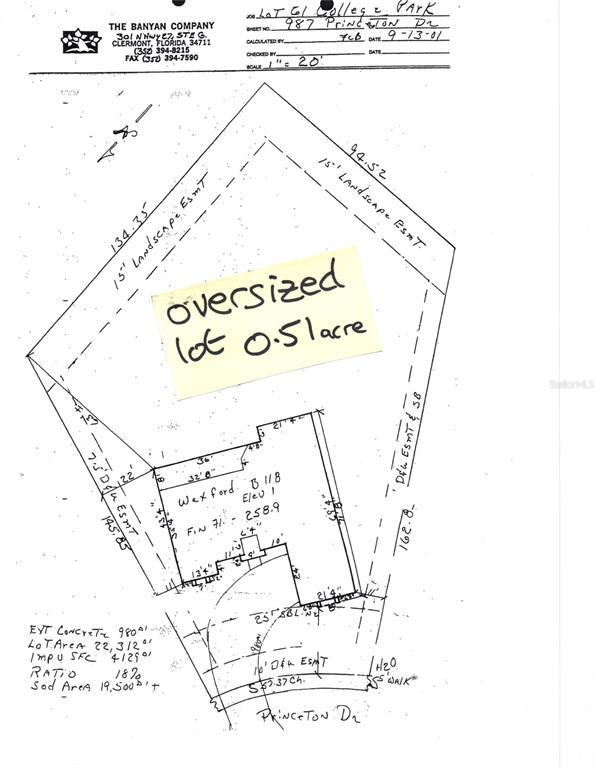 THE BANYAN COMPANY
301 N HWY 27, STE G.
CLERMONT, FLORIDA 34711
(352) 394-8215
FAX (352) 394-7590
JOB LOT 61 College Park
SHEET NO. 987 Princeton Dr
CALCULATED BY DATE 9-13-01
CHECKED BY DATE
SCALE 1" = 20'
94.52
15' Landscape Esmt
134.35
15' Landscape Esmt
oversized
lot 0.51 acre
StellarMLS
D&U ESMT & SB
162.8
7.5' D&U ESMT
145.85
22'
21'4"
4'8"
36'
32'8"
8'
Wexford B118
Elev 1
Fin Fl. - 258.9
6'4"
11'2"
9'
10'
13'4"
21'4"
25' SBLine
10' D&U ESMT
557.37 Ch.
H2O
5' WALK
Princeton Dr
EXT CONCRETE 980
LOT Area 22,312
IMPU SFC 4129
RATIO 18%
Sod Area 19,500 +